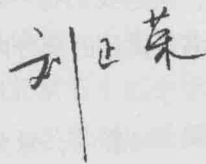 刘正荣